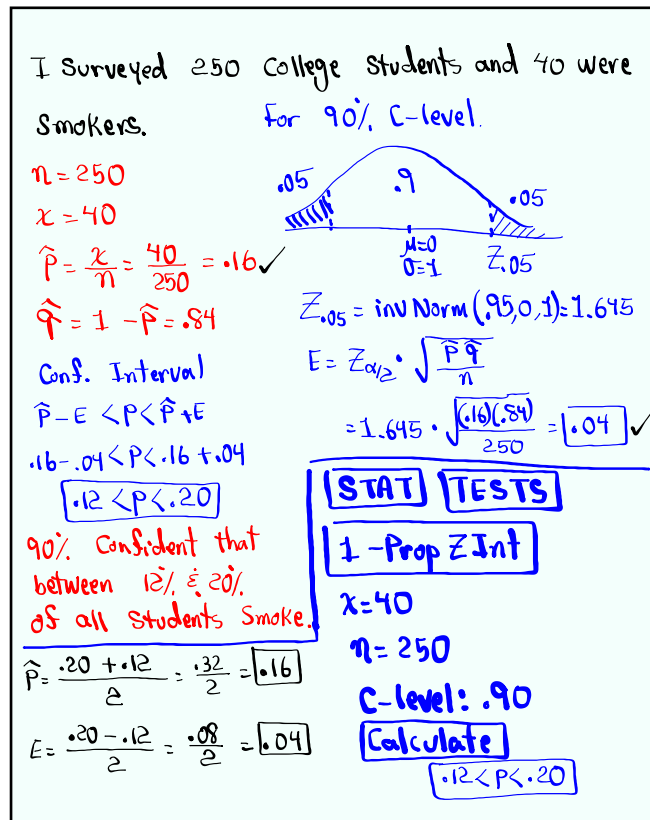 I Surveyed 250 College Students and 40 were
Smokers.
n = 250
x = 40
p̂ = x/n = 40/250 = .16 ✓
q̂ = 1 - p̂ = .84
Conf. Interval
p̂ - E < p < p̂ + E
.16 - .04 < p < .16 + .04
.12 < p < .20
90% Confident that
between 12% & 20%
of all Students Smoke.
p̂ = (.20 + .12)/2 = .32/2 = .16
E = (.20 - .12)/2 = .08/2 = .04
For 90% C-level.
.05 .9 .05
μ=0
σ=1
Z.05
Z.05 = invNorm(.95,0,1)=1.645
E = Zα/2 · √(p̂ q̂/n)
= 1.645 · √((.16)(.84)/250) = .04 ✓
STAT TESTS
1-PropZInt
x=40
n=250
C-level: .90
Calculate
.12 < p < .20